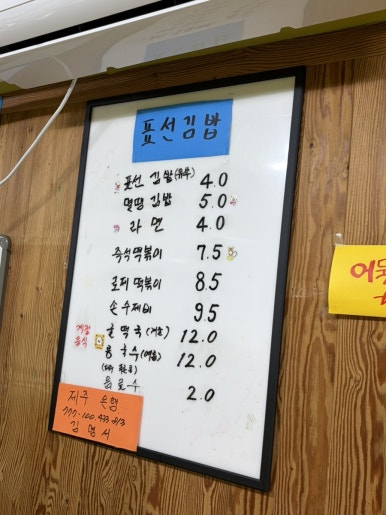 표선김밥
표선 김밥(유부) 4.0
멜땡 김밥 5.0
라면 4.0
즉석떡볶이 7.5
로제 떡볶이 8.5
손수제비 9.5
계절
음식
굴떡국(겨울) 12.0
콩국수(여름) 12.0
음료수 2.0
제주은행
김명서
어묵